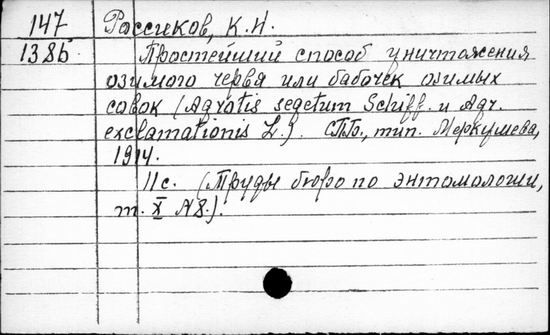 147 Россиков, К.Н.
138б Простейший способ уничтожения
озимого червя или бабочек озимых
совок (Agrotis segetum Schiff. и Agr.
exclamationis L.). СПб., тип. Меркушева,
1914.
11 с. (Труды бюро по энтомологии,
т. X N 8.).